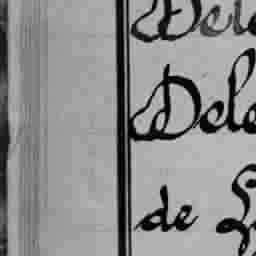 Dele
Dele
de L